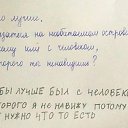 то лучше,
казаться на необитаемом острове
ному или с человеком,
торого ты ненавидишь?
БЫ ЛУЧШЕ БЫЛ С ЧЕЛОВЕКО
ОТОРОГО Я НЕ НАВИЖУ ПОТОМУ
НУЖНО ЧТО ТО ЕСТЬ